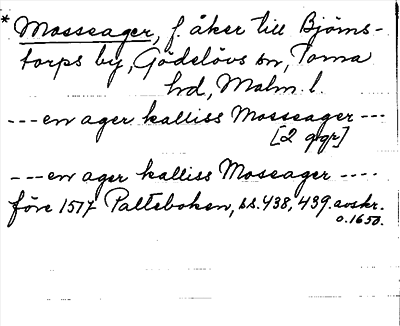 * Mosseager, f. åker till Björns-
torps by, Gödelövs sn, Torna
hd, Malm. l.
--- en ager kalliss Mosseager ---
[2 ggr]
--- en ager kalliss Moseager ----
före 1517 Palteboken, ss. 438, 439. avskr.
o. 1650.